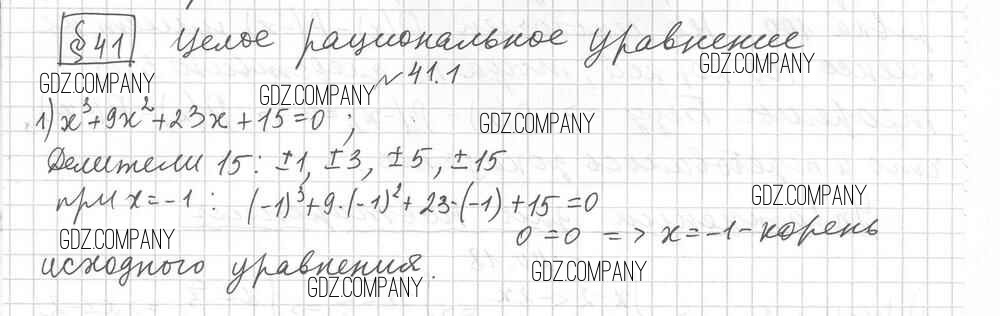 § 41 Целое рациональное уравнение
GDZ.COMPANY
GDZ.COMPANY
№ 41.1
GDZ.COMPANY
1) x³+9x²+23x+15=0 ;
GDZ.COMPANY
Делители 15: ±1, ±3, ±5, ±15
при x=-1 : (-1)³+9·(-1)²+23·(-1)+15=0
GDZ.COMPANY
0=0 => x=-1-корень
GDZ.COMPANY
исходного уравнения.
GDZ.COMPANY
GDZ.COMPANY